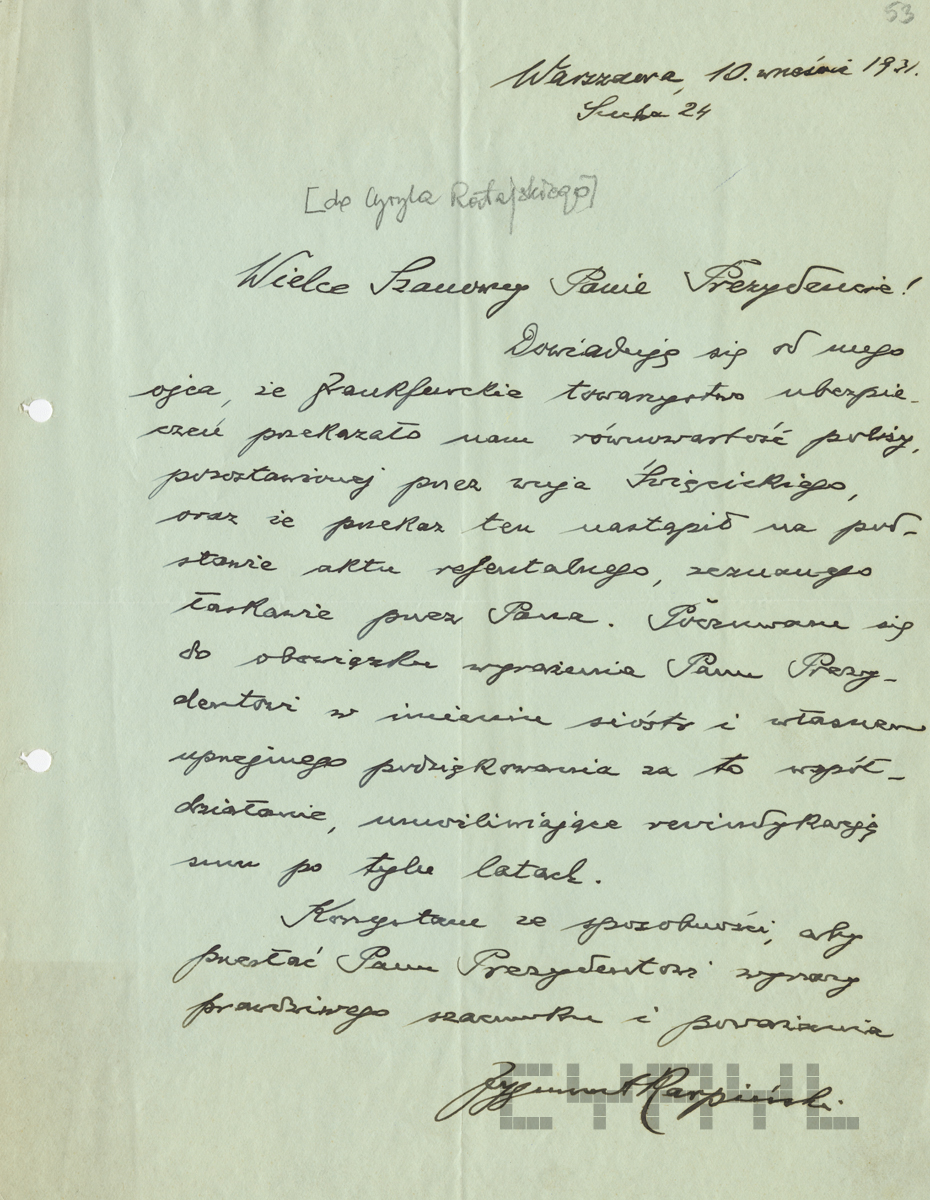 53
Warszawa, 10. września 1931.
Sucha 24
[do Cyryla Ratajskiego]
Wielce Szanowny Panie Prezydencie!
Dowiaduję się od mego
ojca, że frankfurckie towarzystwo ubezpie-
czeń przekazało nam równowartość polisy,
pozostawionej przez wuja Święcickiego,
oraz że przekaz ten nastąpił na pod-
stawie aktu rejentalnego, zeznanego
łaskawie przez Pana. Poczuwam się
do obowiązku wyrażenia Panu Prezy-
dentowi w imieniu sióstr i własnem
uprzejmego podziękowania za to współ-
działanie, umożliwiające rewindykację
sum po tylu latach.
Korzystam ze sposobności, aby
przesłać Panu Prezydentowi wyrazy
prawdziwego szacunku i poważania
Zygmunt Karpiński.
CYRYL